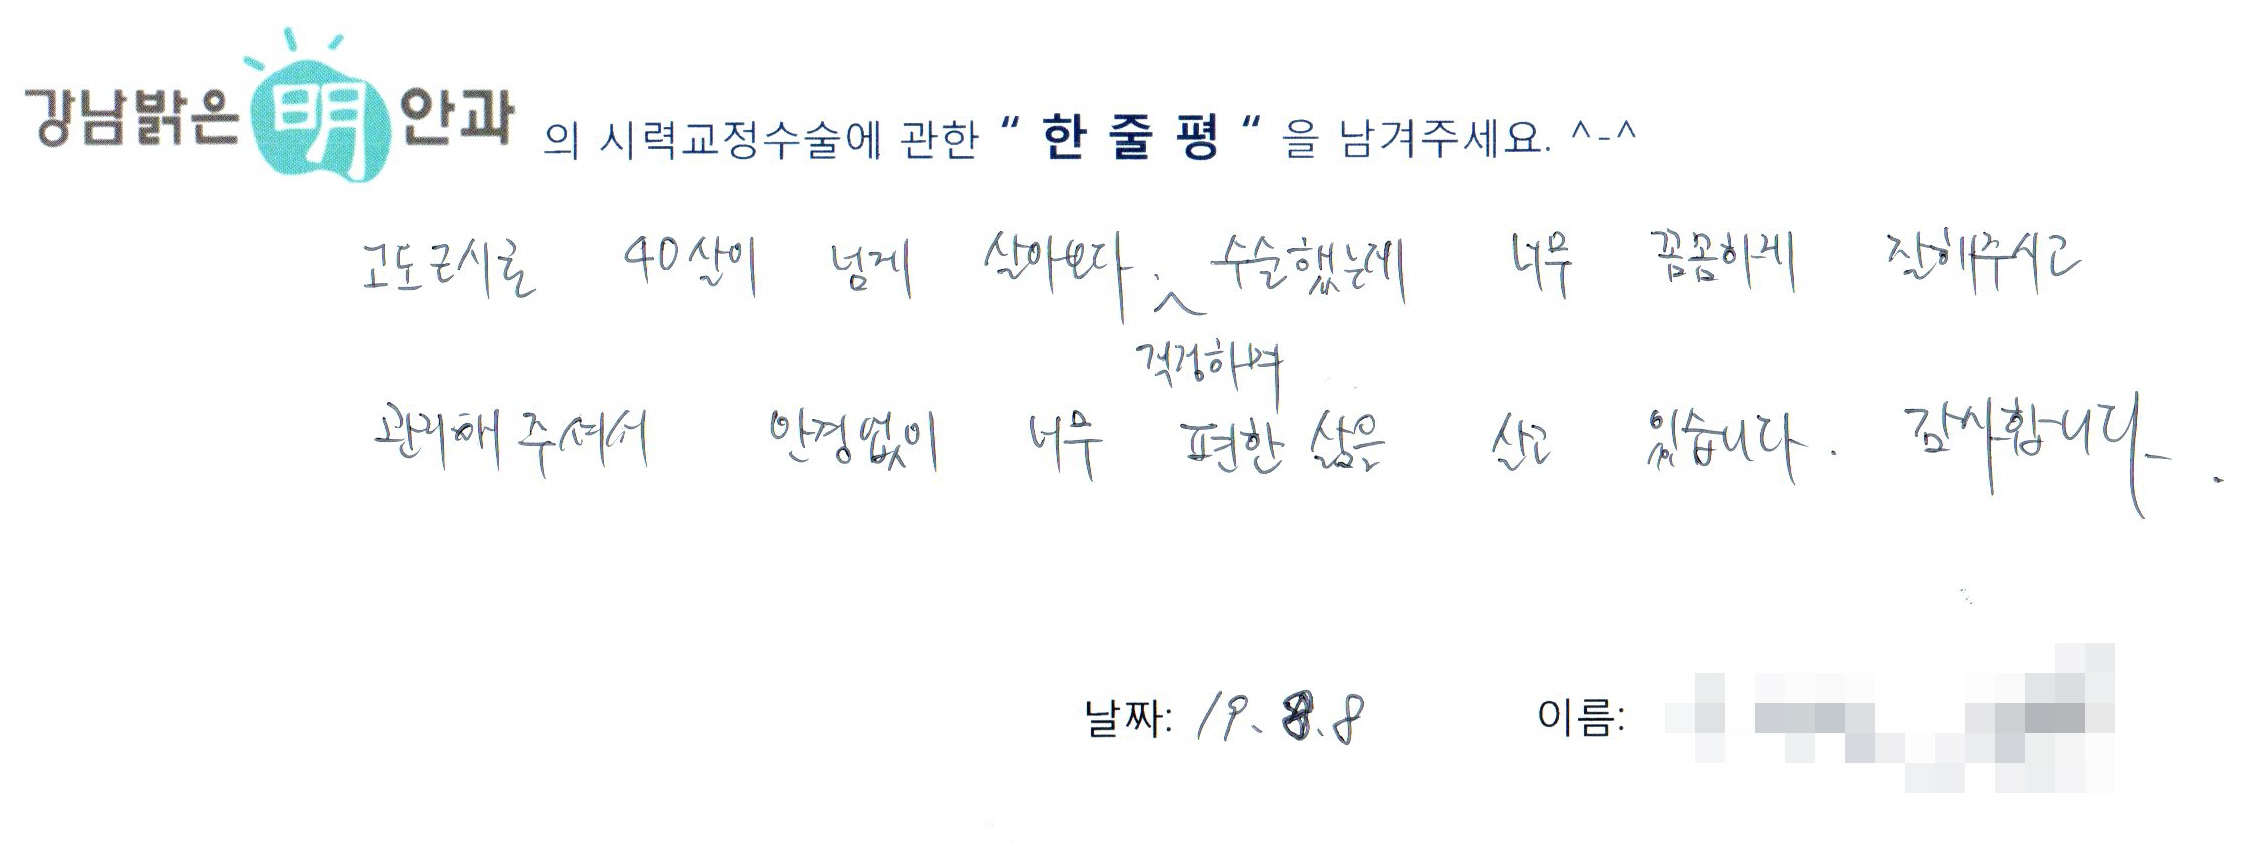 강남밝은 明 안과 의 시력교정수술에 관한 “ 한 줄 평 “ 을 남겨주세요. ^-^
고도근시로 40살이 넘게 살아보다. 수술했는데 너무 꼼꼼하게 잘해주시고
걱정하며
관리해 주셔서 안경없이 너무 편한 삶을 살고 있습니다. 감사합니다.
날짜: 19. 8. 8 이름: